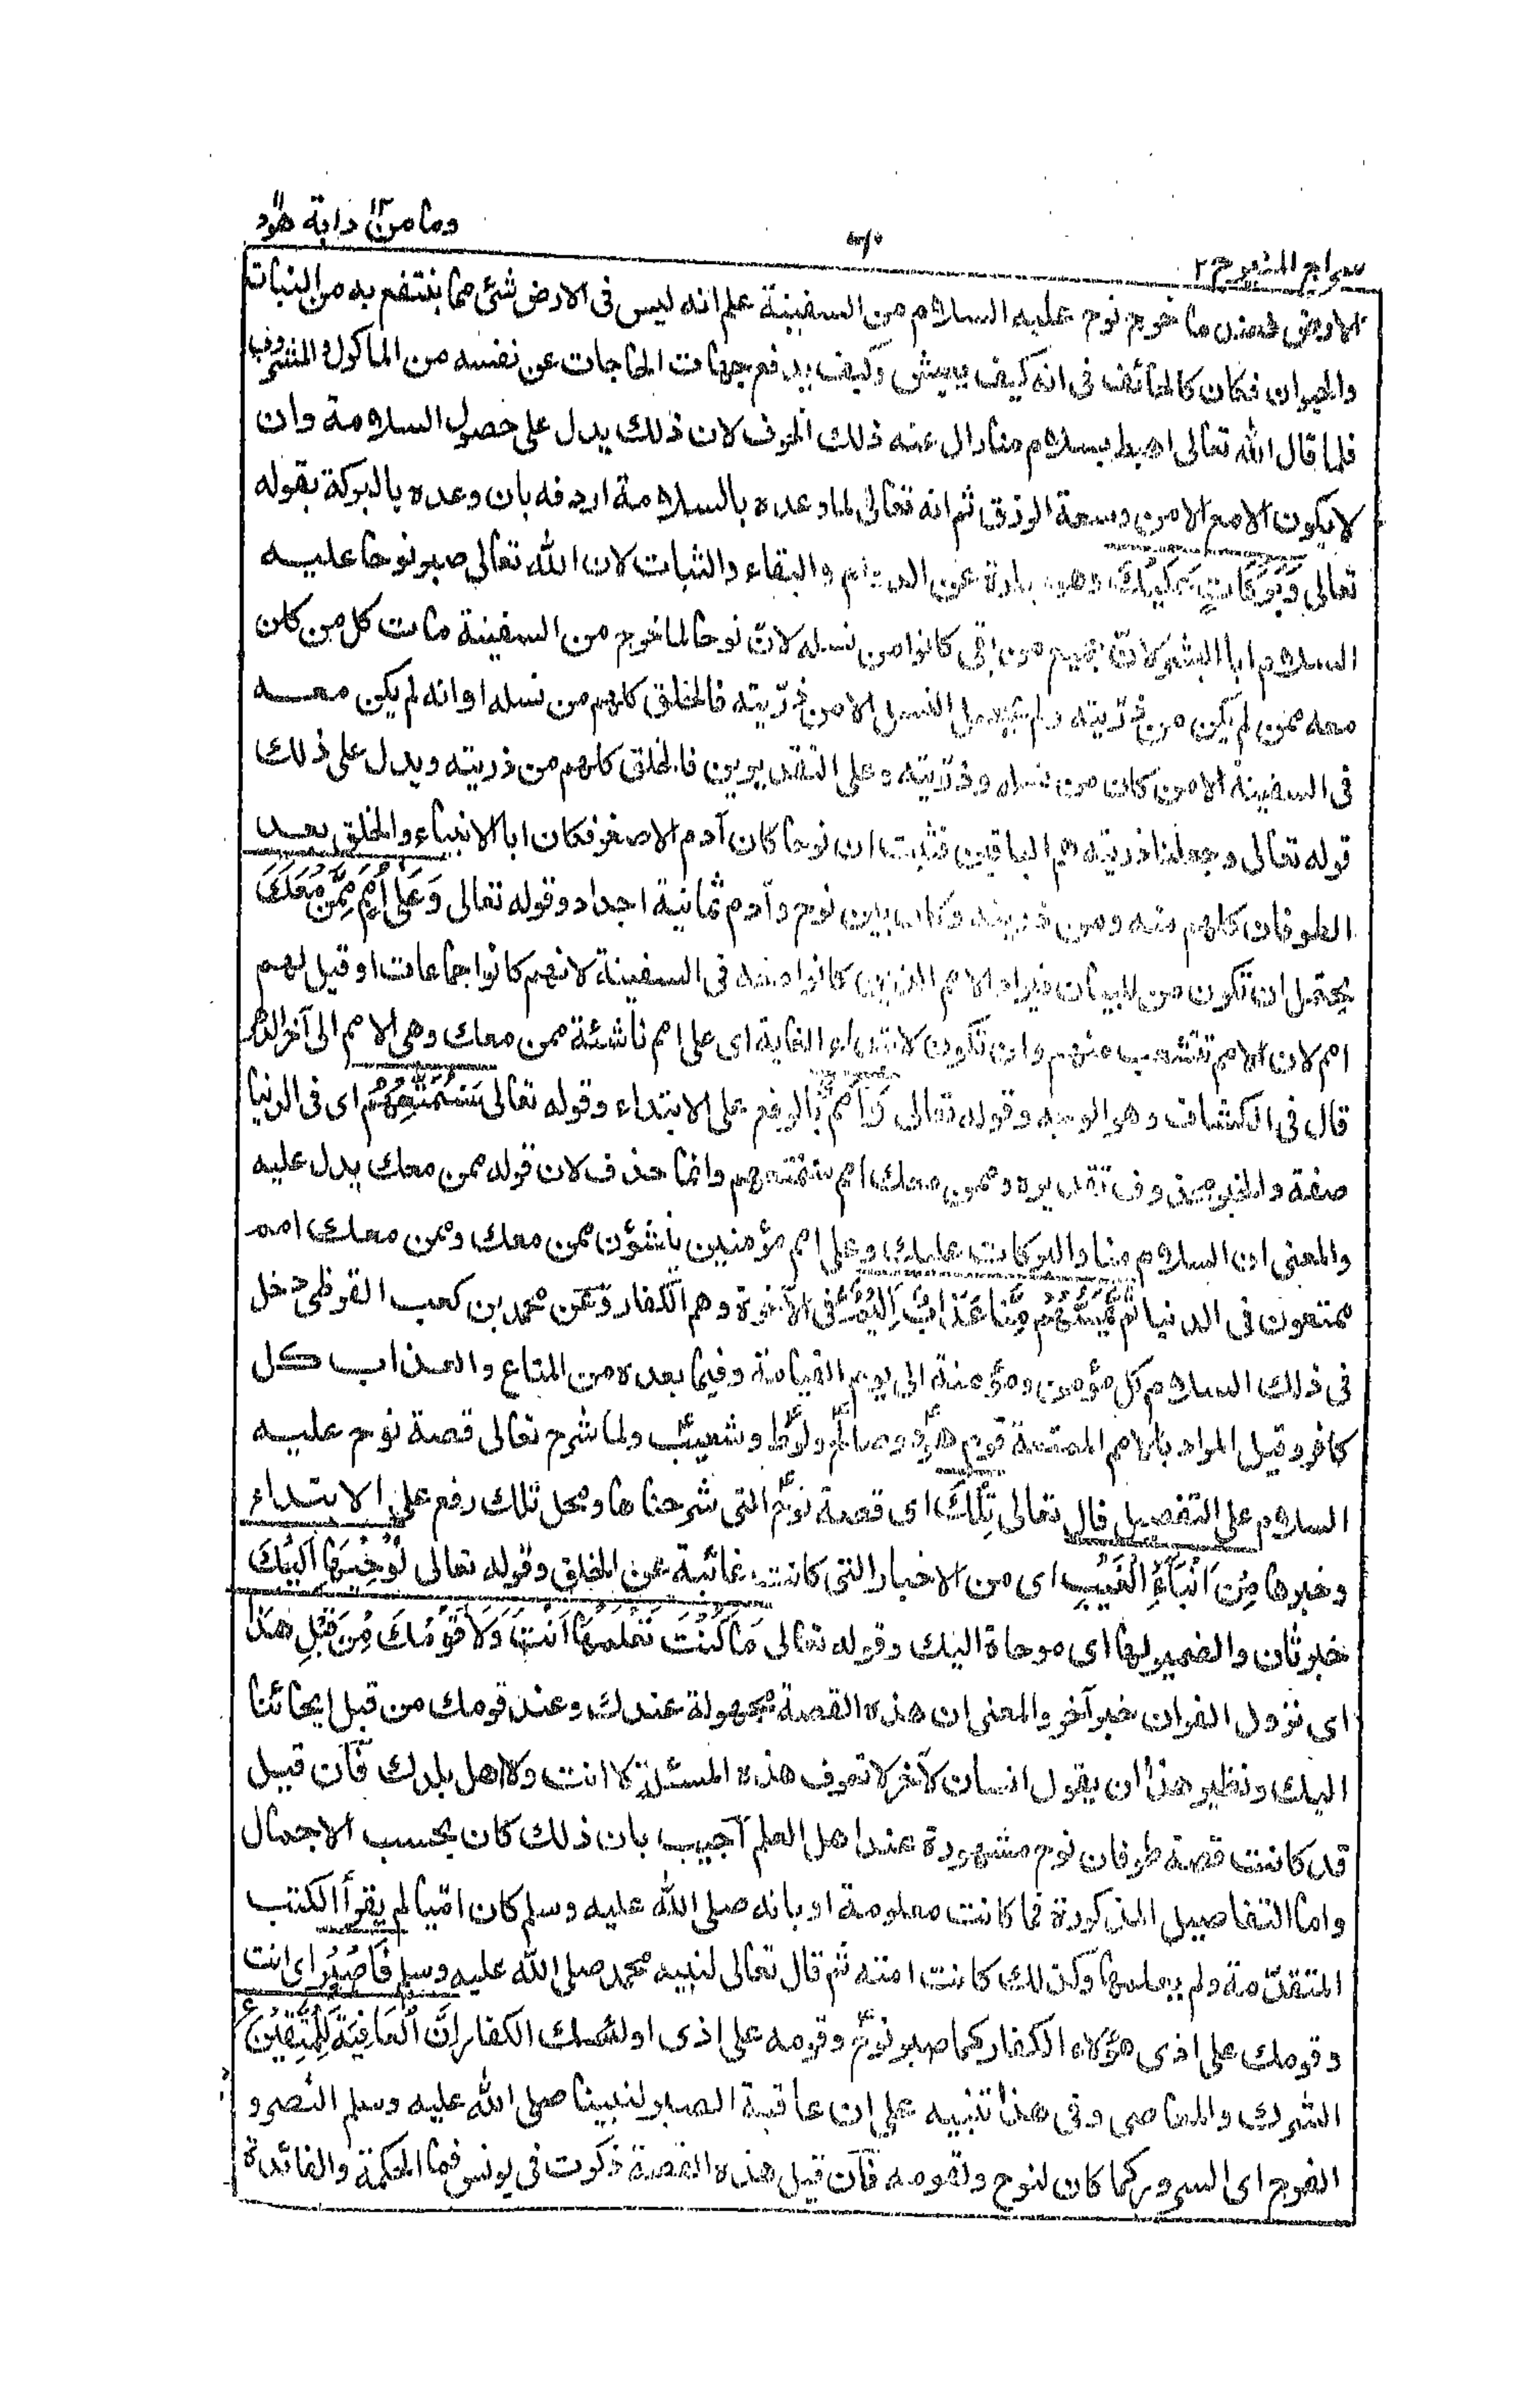 سراج المنير ج ٢
وما من دابة ١٢ هود ١١
الارض فعند ما خرج نوح عليه السلام من السفينة علم انه ليس فى الارض شئ مما ينتفع به من النبات
والحيوان فكان كالخائف فى انه كيف يعيش وكيف يدفع جهات الحاجات عن نفسه من الماكول والمشروب
فلما قال الله تعالى اهبط بسلام منا زال عنه ذلك الخوف لان ذلك يدل على حصول السلامة وان
لا يكون الا مع الامن وسعة الرزق ثم انه تعالى لما وعده بالسلامة اردفه بان وعده بالبركة بقوله
تعالى وَبَرَكَاتٍ عَلَيْكَ وهو عبارة عن الدوام والبقاء والثبات لان الله تعالى صير نوحا عليه
السلام ابا البشر لان جميع من بقى كانوا من نسله لان نوحا لما خرج من السفينة مات كل من كان
معه ممن لم يكن من ذريته ولم يحصل النسل الا من ذريته فالخلق كلهم من نسله او انه لم يكن معه
فى السفينة الا من كان من نسله وذريته وعلى التقديرين فالخلق كلهم من ذريته ويدل على ذلك
قوله تعالى وجعلنا ذريته هم الباقين فثبت ان نوحا كان آدم الاصغر فكان ابا الانبياء والخلق بعد
الطوفان كلهم منه ومن ذريته وكان بين نوح وآدم ثمانية اجداد وقوله تعالى وَعَلَى أُمَمٍ مِّمَّن مَّعَكَ
يحتمل ان تكون من للبيان فيراد الامم الذين كانوا معه فى السفينة لانهم كانوا جماعات او قيل لهم
امم لان الامم تتشعب منهم وان تكون لابتداء الغاية اى على امم ناشئة ممن معك وهى الامم الى آخر الدهر
قال فى الكشاف وهو الوجه وقوله تعالى وَأُمَمٌ بالرفع على الابتداء وقوله تعالى سَنُمَتِّعُهُمْ اى فى الدنيا
صفة والخبر محذوف تقديره وممن معك امم سنمتعهم وانما حذف لان قوله ممن معك يدل عليه
والمعنى ان السلام منا والبركات عليك وعلى امم مؤمنين ينشؤن ممن معك وممن معك امم
ممتعون فى الدنيا ثُمَّ يَمَسُّهُم مِّنَّا عَذَابٌ اَلِيْمٌ فى الآخرة وهم الكفار وعن محمد بن كعب القرظى دخل
فى ذلك السلام كل مؤمن ومؤمنة الى يوم القيامة وفيما بعده من المتاع والعذاب كل
كافر وقيل المراد بالامم الممتعة قوم هود وصالح ولوط وشعيب ولما شرح تعالى قصة نوح عليه
السلام على التفصيل قال تعالى تِلْكَ اى قصة نوح التى شرحناها ومحل تلك رفع على الابتداء
وخبرها مِنْ اَنْبَآءِ الْغَيْبِ اى من الاخبار التى كانت غائبة عن الخلق وقوله تعالى نُوْحِيْهَا اِلَيْكَ
خبر ثان والضمير لها اى موحاة اليك وقوله تعالى مَا كُنْتَ تَعْلَمُهَا اَنْتَ وَلَا قَوْمُكَ مِنْ قَبْلِ هٰذَا
اى نزول القران خبر آخر والمعنى ان هذه القصة مجهولة عندك وعند قومك من قبل ايحائنا
اليك ونظير هذا ان يقول انسان لآخر لا تعرف هذه المسئلة لا انت ولا اهل بلدك فآن قيل
قد كانت قصة طوفان نوح مشهورة عند اهل العلم آجيب بان ذلك كان بحسب الاجمال
واما التفاصيل المذكورة فما كانت معلومة او بانه صلى الله عليه وسلم كان اميا لم يقرأ الكتب
المتقدمة ولم يعلمها وكذلك كانت امته ثم قال تعالى لنبيه محمد صلى الله عليه وسلم فَاصْبِرْ اى انت
وقومك على اذى هؤلاء الكفار كما صبر نوح وقومه على اذى اولئك الكفار اِنَّ الْعَاقِبَةَ لِلْمُتَّقِيْنَ
الشرك والمعاصى وفى هذا تنبيه على ان عاقبة الصبر لنبينا صلى الله عليه وسلم النصر و
الفرج اى السرور كما كان لنوح ولقومه فآن قيل هذه القصة ذكرت فى يونس فما الحكمة والفائدة